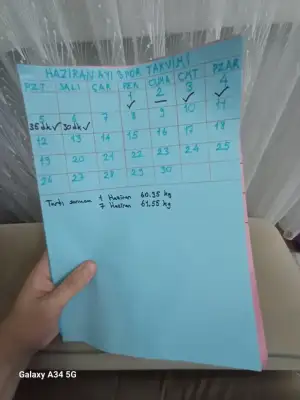 HAZİRAN AYI SPOR TAKVİMİ
PZT SALI ÇAR PER CUMA CMT PZAR
1 2 3 4
5 6 7 8 9 10 11
35dk✓ 30dk✓
12 13 14 15 16 17 18
19 20 21 22 23 24 25
26 27 28 29 30
Tartı sonucu 1 Haziran 60.95 kg
7 Haziran 61,55 kg
Galaxy A34 5G